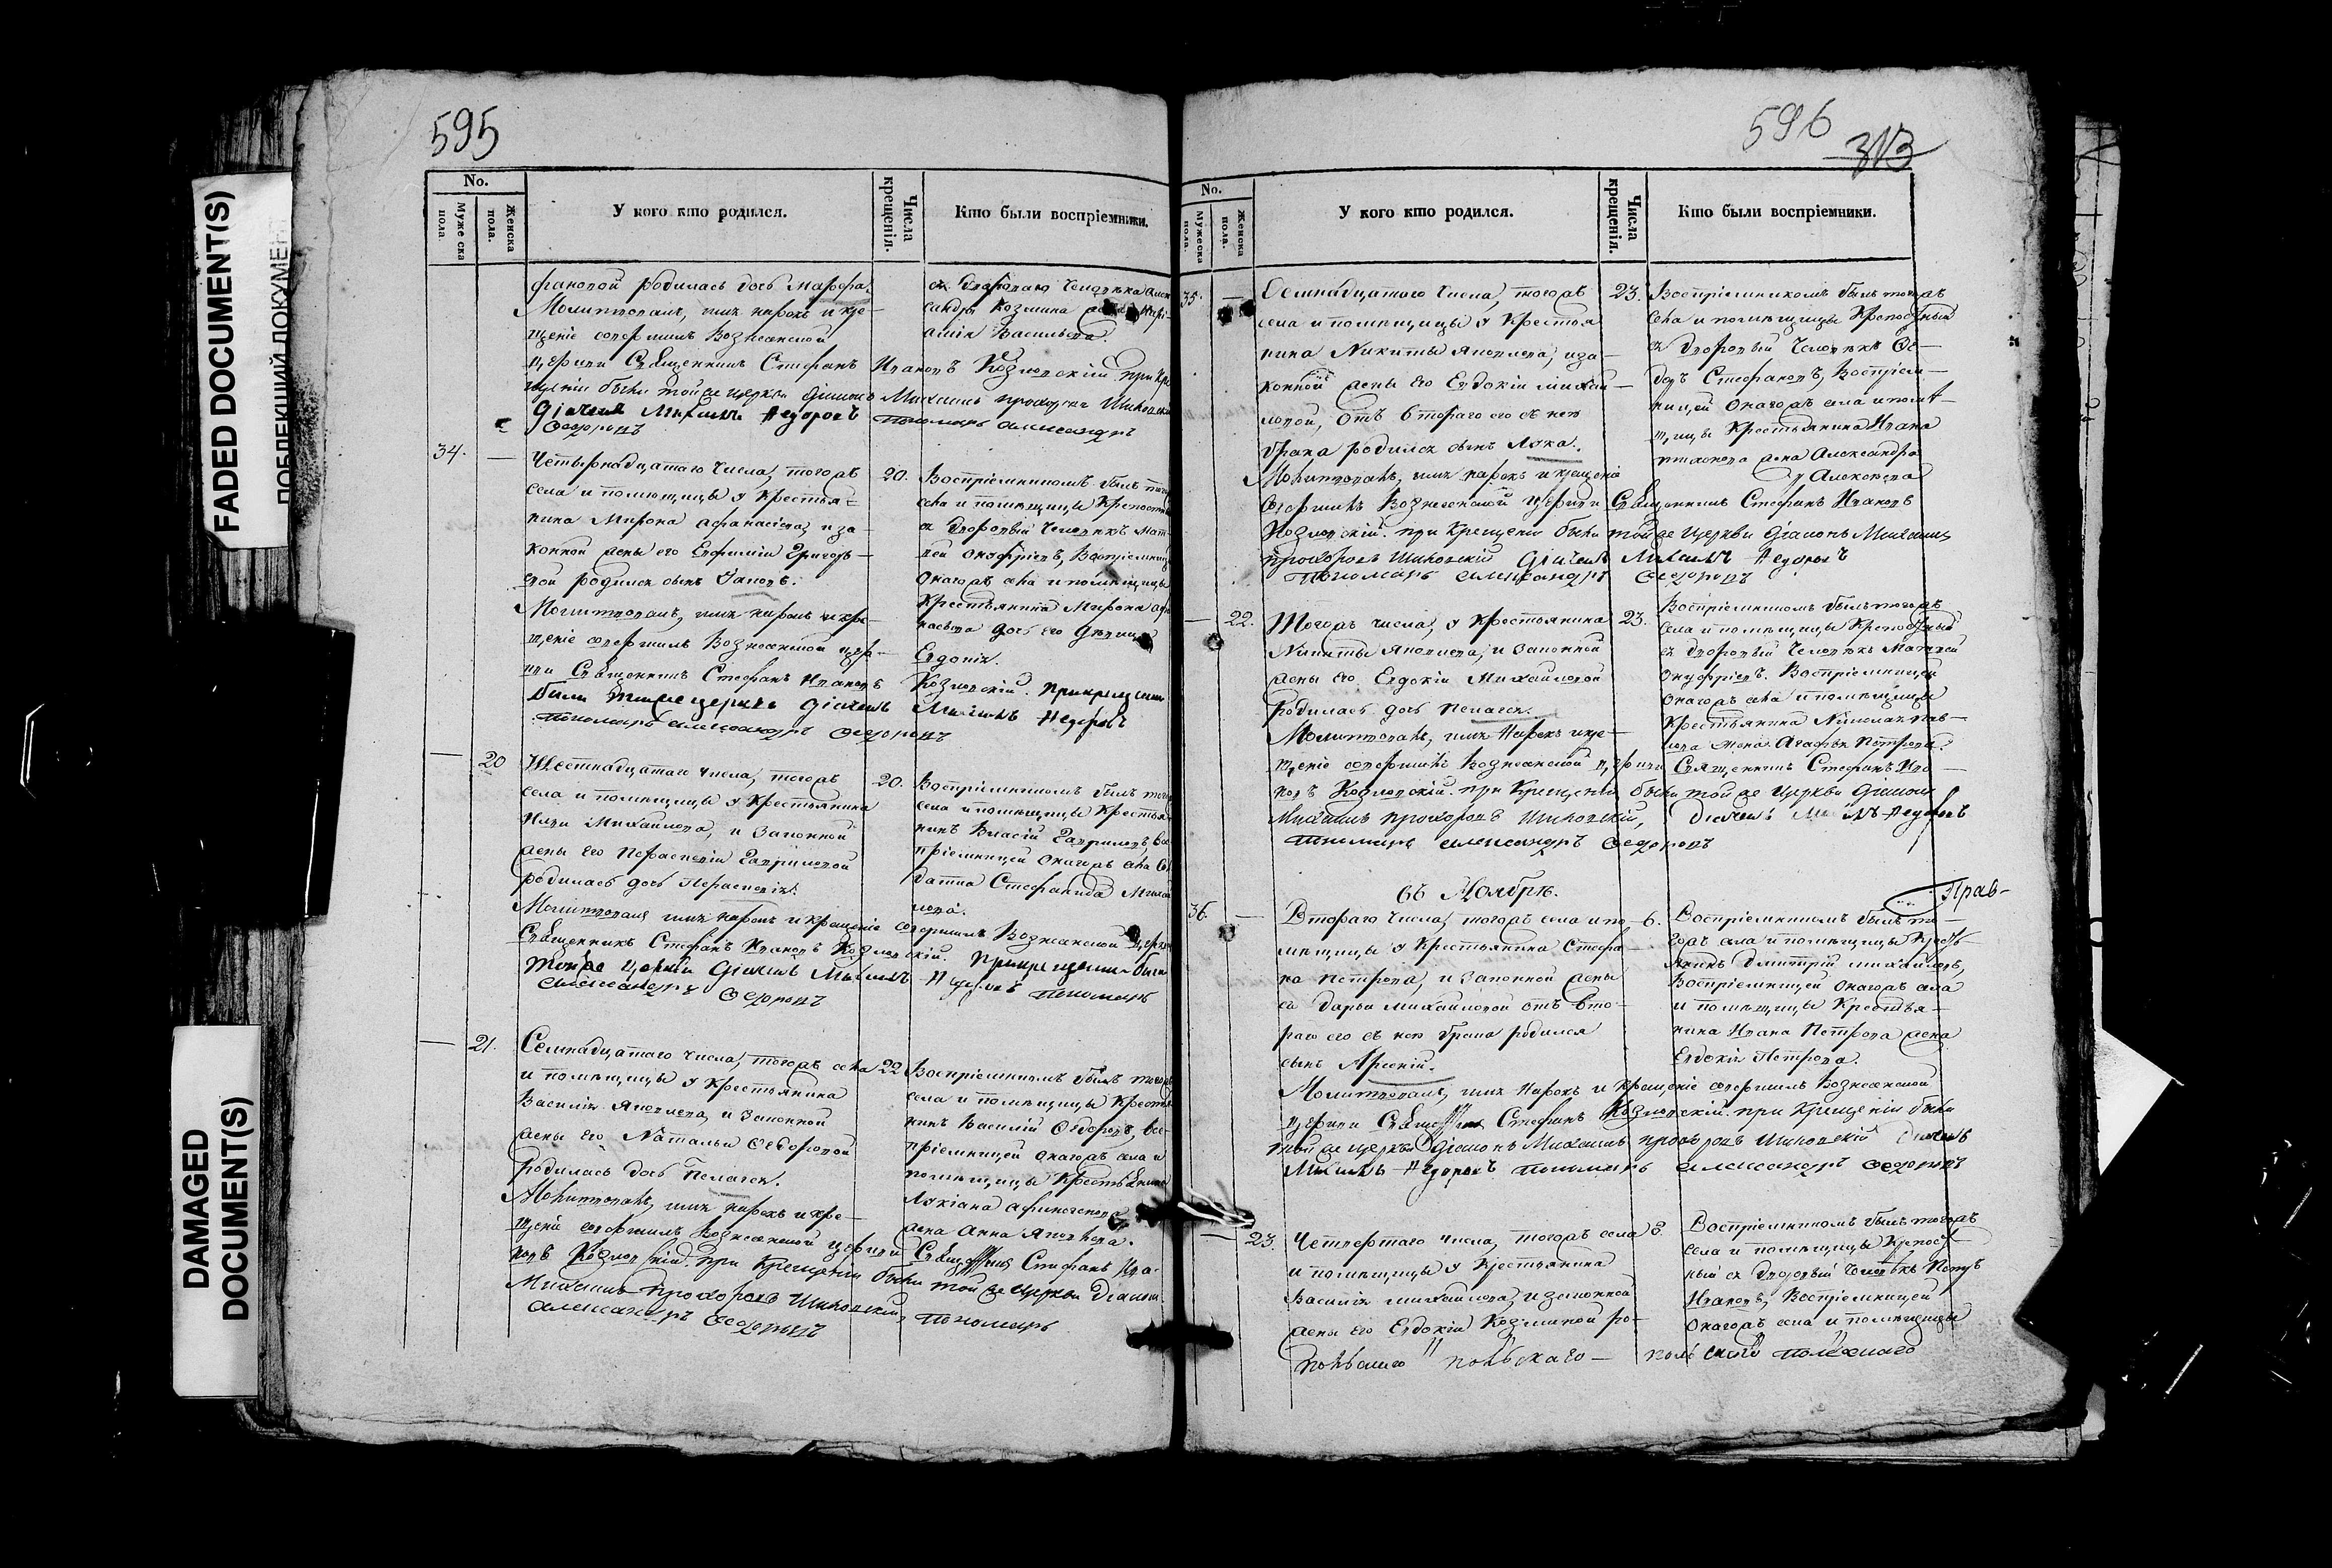 FADED DOCUMENT(S)
DAMAGED
DOCUMENT(S)
595
No.
Мужеска пола.
Женска пола.
У кого кто родился.
Числа крещенія.
Кто были воспріемники.
фановой родилась дочь Марѳа.
Молитвовалъ, имя нарекъ и кре-
щеніе совершилъ Вознесенской
церкви Священникъ Стефанъ Ивановъ Козловскій при кре-
щеніи были тойже церкви Діаконъ Михаилъ Прохоровъ
Дiячекъ Михаилъ Ѳедоровъ Пономарь Александръ
Ѳедоровъ
съ двороваго человѣка Алек
сандра Козмина жена
Васильева.
34.
—
Четырнадцатаго числа, тогожъ
села и помѣщицы у крестья-
нина Мирона Афанасіева, и за-
конной жены его Евфиміи Григорь-
евой родился сынъ Іаковъ.
Молитвовалъ, имя нарекъ и кре-
щеніе совершилъ Вознесенской цер-
кви Священникъ Стефанъ Ивановъ Козловскій. При крещеніи
были тойже церкви Діячекъ Михаилъ Ѳедоровъ
Пономарь Александръ Ѳедоровъ
20.
Воспріемникомъ былъ того
села и помѣщицы крепостный
дворовый человѣкъ Мат
вей Онуфріевъ, Воспріемницей
оногожъ села и помѣщицы
крестьянина Мирона Афа
насьева дочь его дѣвица
Евдокія.
—
20
Шестнадцатаго числа, тогожъ
села и помѣщицы у крестьянина
Ильи Михайлова, и законной
жены его Параскевіи Гавриловой
родилась дочь Параскевія.
Молитвовалъ имя нарекъ и крещеніе совершилъ Вознесенской церкви
Священникъ Стефанъ Ивановъ Козловскій. При крещеніи были
тойже церкви Діячекъ Михаилъ Ѳедоровъ Пономарь
Александръ Ѳедоровъ
20.
Воспріемникомъ былъ того
села и помѣщицы крестья
нинъ Власій Гавриловъ, во
спріемницей оногожъ села Сол
датка Стефанида Михай
лова.
—
21.
Семнадцатаго числа, тогожъ села
и помѣщицы у крестьянина
Василія Яковлева, и законной
жены его Натальи Ѳедоровой
родилась дочь Пелагея.
Молитвовалъ, имя нарекъ и кре-
щеніе совершилъ Вознесенской церкви Священникъ Стефанъ Ива-
новъ Козловскій. при крещеніи были тойже церкви Діаконъ
Михаилъ Прохоровъ Пономарь
Александръ Ѳедоровъ
22
Воспріемникомъ былъ тогожъ
села и помѣщицы крестья
нинъ Василій Ѳедоровъ, вос-
пріемницей оногожъ села и
помѣщицы крестьянина
Лукіана Афиногенова
жена Анна Яковлева.
596
313
No.
Мужеска пола.
Женска пола.
У кого кто родился.
Числа крещенія.
Кто были воспріемники.
35.
—
Осмнадцатаго числа, тогожъ
села и помѣщицы у крестья
нина Никиты Яковлева, и за-
конной жены его Евдокіи Михай-
ловой, отъ втораго его съ нею
брака родился сынъ Лука.
Молитвовалъ, имя нарекъ и крещеніе
совершилъ Вознесенской церкви Священникъ Стефанъ Ивановъ
Козловскій. при крещеніи были тойже церкви Діаконъ Михаилъ
Прохоровъ Діячекъ Михаилъ Ѳедоровъ
Пономарь Александръ Ѳедоровъ
23.
Воспріемникомъ былъ тогожъ
села и помѣщицы крепостный
дворовый человѣкъ Ѳе-
доръ Стефановъ, Воспріем-
ницей оногожъ села и помѣ-
щицы крестьянина Ивана
жена Александра
Алексѣева
—
22.
Тогожъ числа, у крестьянина
Никиты Яковлева, и законной
жены его Евдокіи Михайловой
родилась дочь Пелагея.
Молитвовалъ, имя нарекъ и кре-
щеніе совершилъ Вознесенской церкви Священникъ Стефанъ Ива-
новъ Козловскій. при крещеніи были тойже церкви Діаконъ
Михаилъ Прохоровъ Діячекъ Ѳедоровъ
Пономарь Александръ Ѳедоровъ
23.
Воспріемникомъ былъ тогожъ
села и помѣщицы крепостный
дворовый человѣкъ Матвей
Онуфріевъ. Воспріемницей
оногожъ села и помѣщицы
крестьянина Николая Пав-
лова жена Агафья Петрова.
въ Ноябрѣ.
Прав-
36.
—
Втораго числа, тогожъ села и по-
мѣщицы у крестьянина Стефа-
на Петрова, и законной жены
его Дарьи Михайловой отъ вто-
раго его съ нею брака родился
сынъ Арсеній.
Молитвовалъ, имя нарекъ и крещеніе совершилъ Вознесенской
церкви Священникъ Стефанъ Козловскій. при крещеніи были
тойже церкви Діаконъ Михаилъ Прохоровъ Діячекъ
Михаилъ Ѳедоровъ Пономарь Александръ Ѳедоровъ
6.
Воспріемникомъ былъ то-
гожъ села и помѣщицы кресть-
янинъ Димитрій Михайловъ,
Воспріемницей оногожъ села
и помѣщицы крестья-
нина Ивана Петрова жена
Евдокія Петрова.
—
23.
Четвертаго числа, тогожъ села
и помѣщицы у крестьянина
Василія Михайлова, и законной
жены его Евдокіи Козминой ро-
8.
Воспріемникомъ былъ тогожъ
села и помѣщицы крепост-
ный дворовый человѣкъ Петръ
Ивановъ, Воспріемницей
оногожъ села и помѣщицы